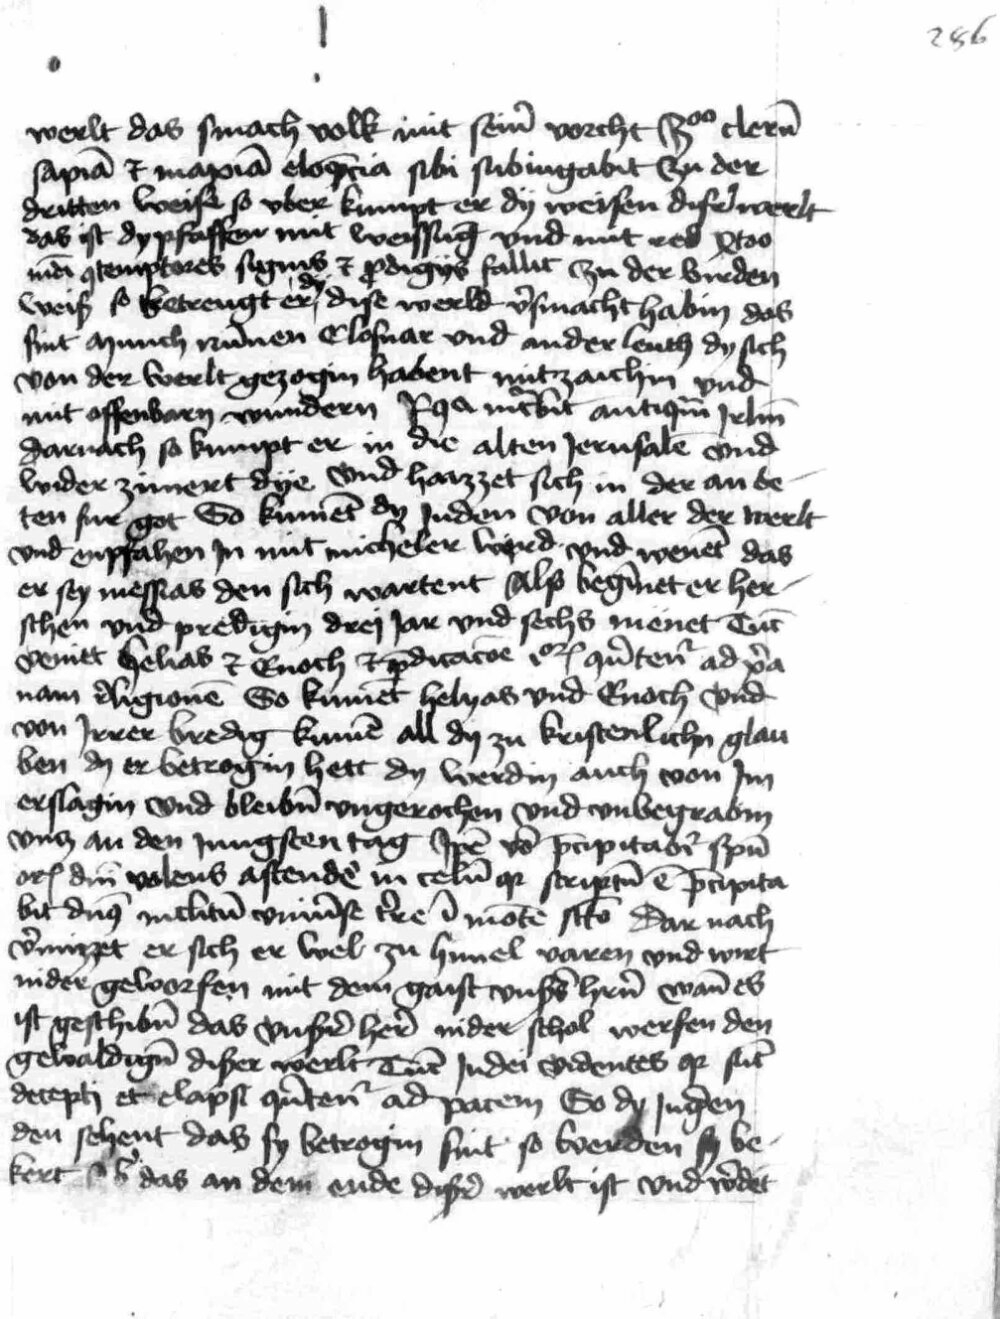 286
werlt das smach volk mit seiner vorcht Scdo clerum
sapia et maxia eloqncia sibi subiugabit Zu der
dritten weise so vber kumpt er dy weisen diser werlt
das ist dy pfaffen mit weissug vnd mit red Tcio
mdi 9temptores signis et prodigijs fallit Zu der virden
weiß so betreugt er dy dise werld vsmacht habin das
sint munch nunen Closnar vnd ander leuth dy sich
von der werlt gezogin habent mit zaichin vnd
mit offenbarn wundern antiqua Irlm
darnach so kumpt er in die alten Jerusale vnd
wider zimert dye vnd hayzzet sich in der an be-
ten fur got So kumet dy Juden von aller der werlt
vnd enpfahen In mit micheler wird vnd wenet das
er sey messias den sich wartent Alß beginet er her-
schen vnd predigin drei Jar vnd sechs menet Tuc
veniet helias et Enoch et pdicacoe ior quten ad xpia
nam religione So kumet helyas vnd Enoch vnd
von Irrer bredig kume all dy zu kristenlichn glau
ben dy er betrogin hett dy werdin auch von Im
erslagin vnd bleibn vngerochen vnd vnbegrabin
vncz an den Jungsten tag Ipe vo pcipitabit spu
oris dni volens ascende in celu qr scriptu e pcipita
bit dns inclitu vniuse tre i mote scto Dar nach
vmizzet er sich er wel zu himel varen vnd wirt
nider geworfen mit dem gaist vnßs hrn wan es
ist geschibn das vnßer her nider schol werfen den
gewaldign dißer werlt Tuc Judei videntes qr sut
decepti et elapsi quten ad pacem So dy Jugen
den sehent das sy betrogin sint so werden sy be-
kert das an dem ende dißer werlt ist vnd wdet